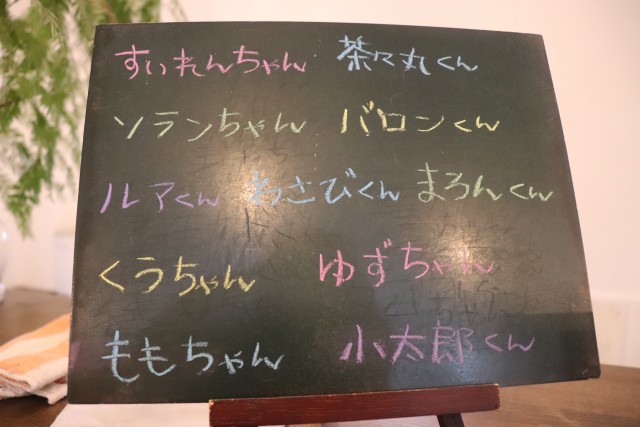 すいれんちゃん 茶々丸くん
ソランちゃん バロンくん
ルアくん わさびくん まろんくん
くうちゃん ゆずちゃん
ももちゃん 小太郎くん